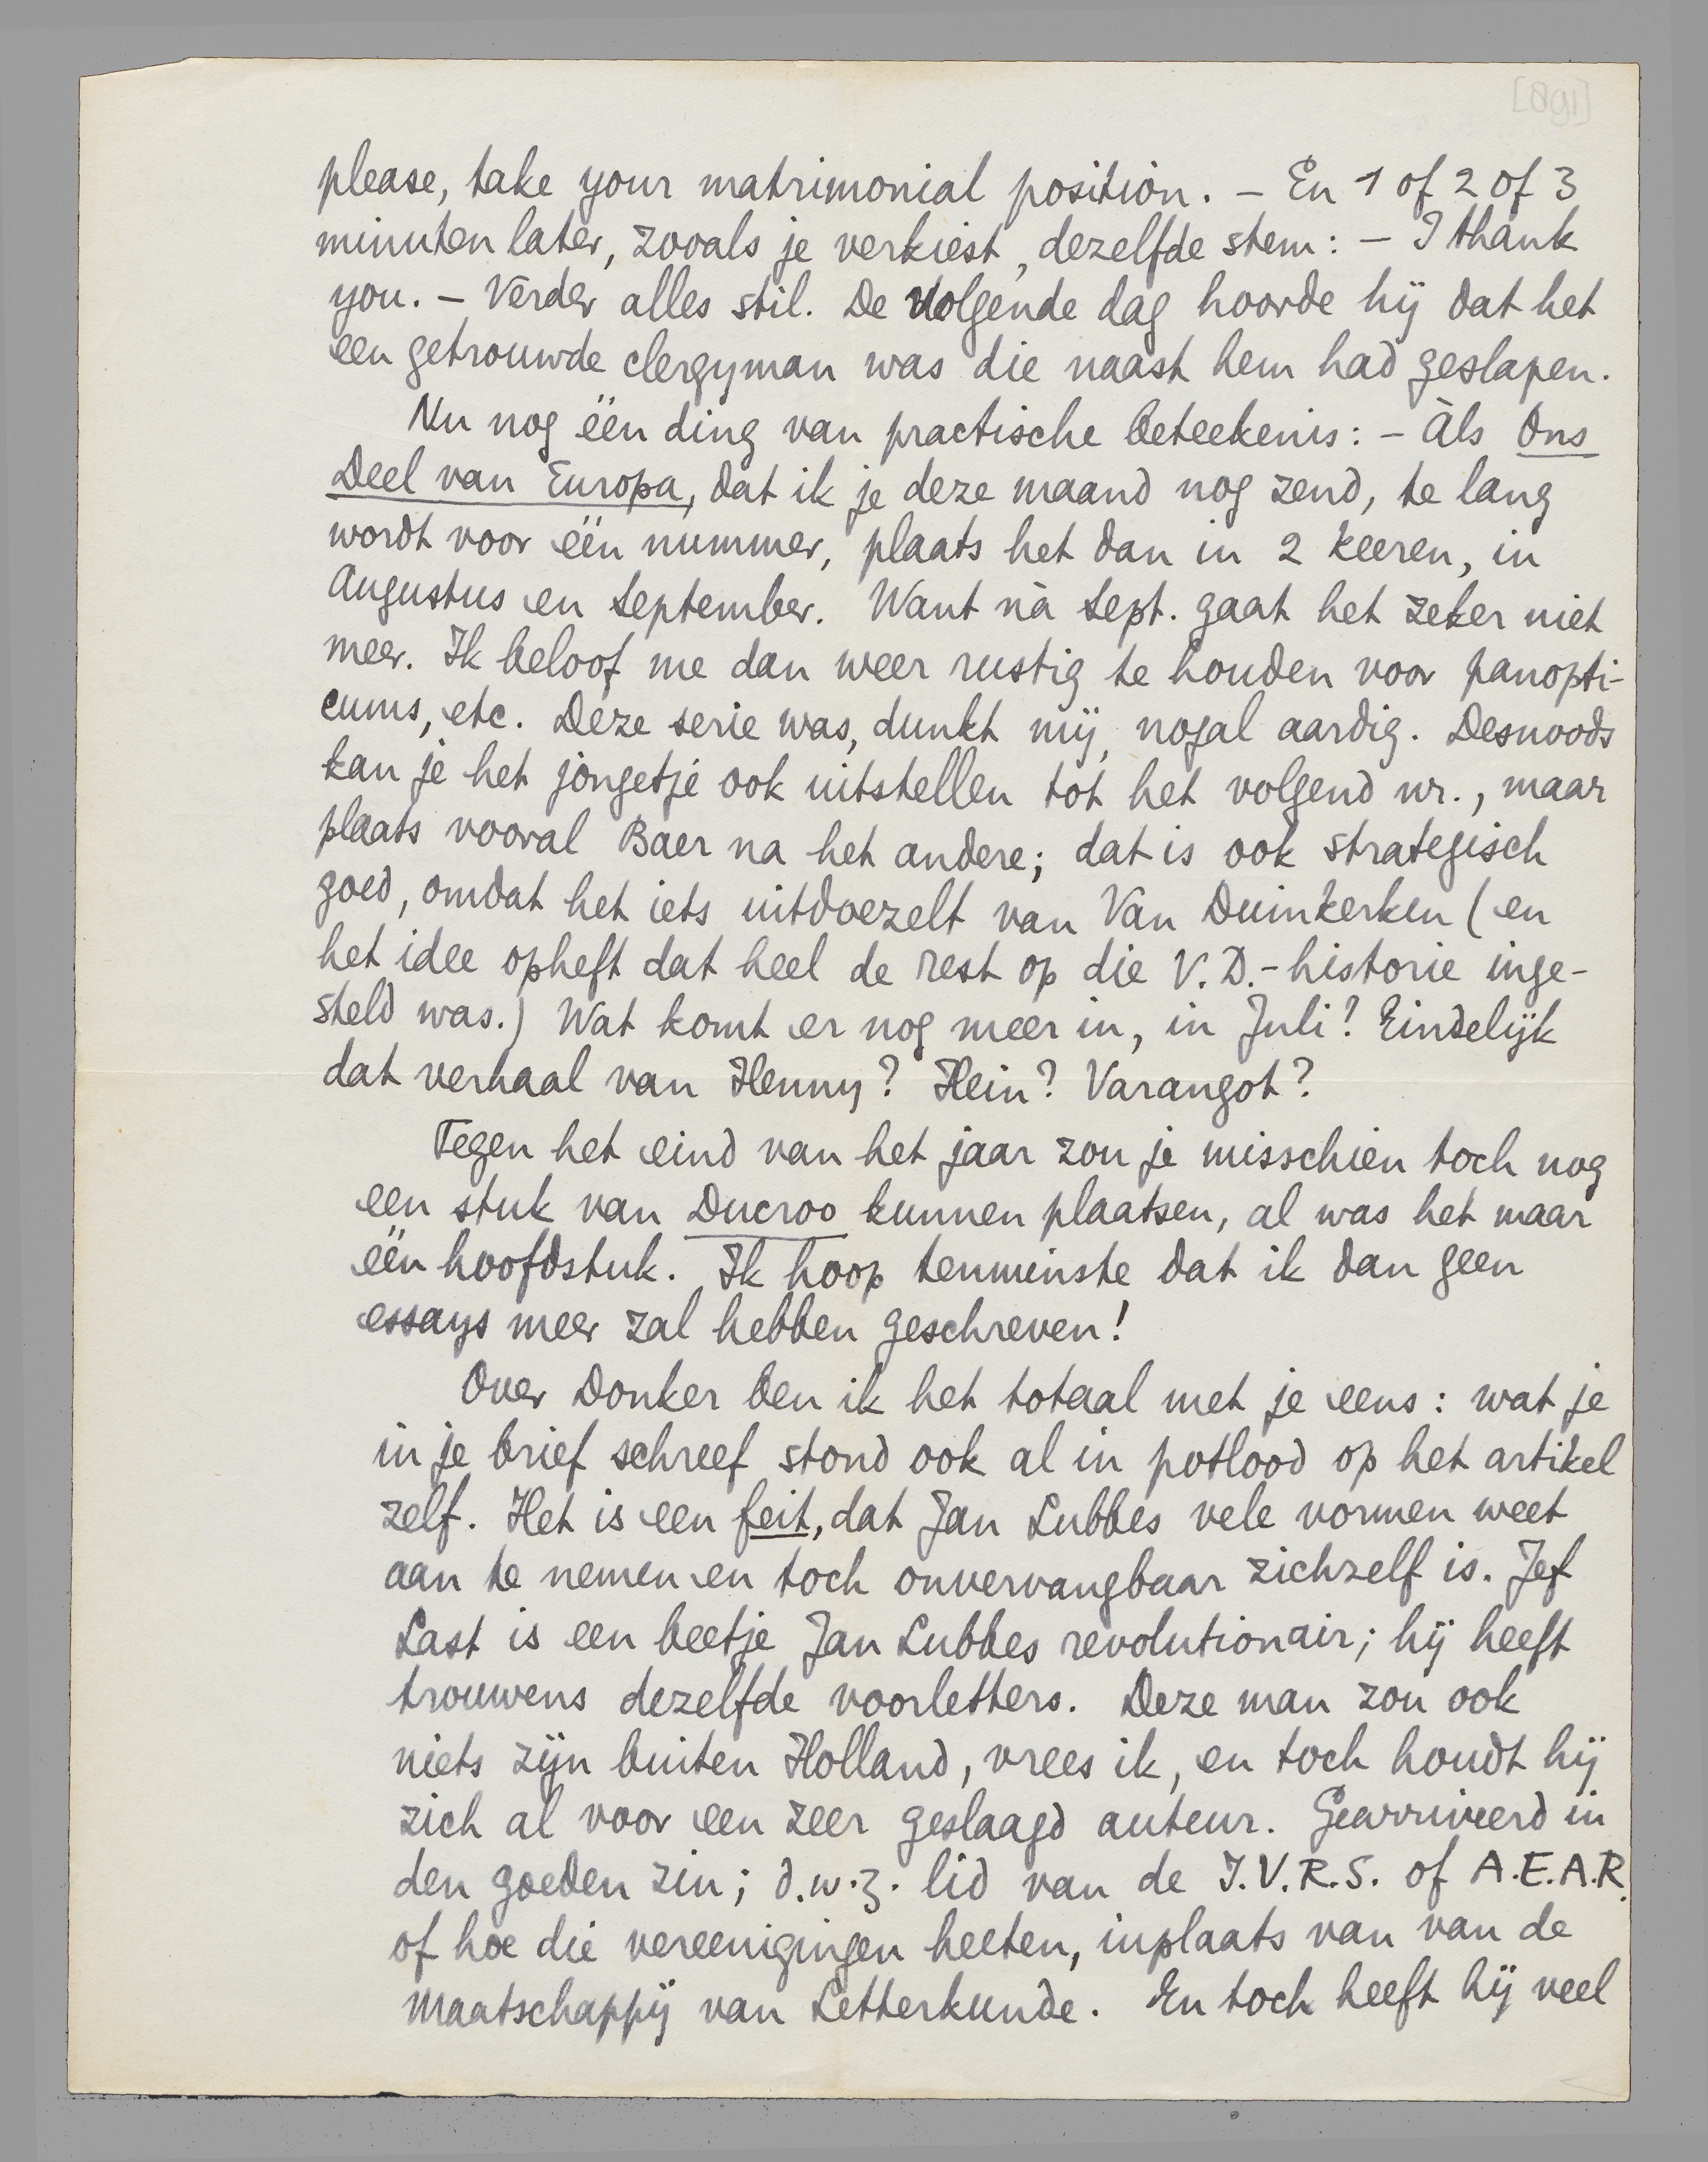 [891]
please, take your matrimonial position. – En 1 of 2 of 3
minuten later, zooals je verkiest, dezelfde stem: – I thank
you. – Verder alles stil. De volgende dag hoorde hij dat het
een getrouwde clergyman was die naast hem had geslapen.
Nu nog één ding van practische beteekenis: – Àls Ons
Deel van Europa, dat ik je deze maand nog zend, te lang
wordt voor één nummer, plaats het dan in 2 keeren, in
Augustus en September. Want nà Sept. gaat het zeker niet
meer. Ik beloof me dan weer rustig te houden voor panopti-
cums, etc. Deze serie was, dunkt mij, nogal aardig. Desnoods
kan je het jongetje ook uitstellen tot het volgend nr., maar
plaats vooral Baer na het andere; dat is ook strategisch
goed, omdat het iets uitdoezelt van Van Duinkerken (en
het idee opheft dat heel de rest op die V.D.-historie inge-
steld was.) Wat komt er nog meer in, in Juli? Eindelijk
dat verhaal van Henny? Hein? Varangot?
Tegen het eind van het jaar zou je misschien toch nog
een stuk van Ducroo kunnen plaatsen, al was het maar
één hoofdstuk. Ik hoop tenminste dat ik dan geen
essays meer zal hebben geschreven!
Over Donker ben ik het totaal met je eens: wat je
in je brief schreef stond ook al in potlood op het artikel
zelf. Het is een feit, dat Jan Lubbes vele vormen weet
aan te nemen en toch onvervangbaar zichzelf is. Jef
Last is een beetje Jan Lubbes revolutionair; hij heeft
trouwens dezelfde voorletters. Deze man zou ook
niets zijn buiten Holland, vrees ik, en toch houdt hij
zich al voor een zeer geslaagd auteur. Gearriveerd in
den goeden zin; d.w.z. lid van de I.V.R.S. of A.E.A.R.
of hoe die vereenigingen heeten, inplaats van van de
Maatschappij van Letterkunde. En toch heeft hij veel